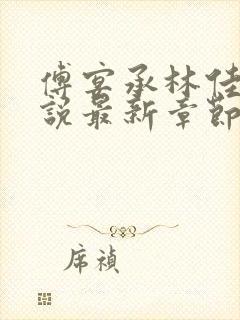 傅宴承林佳
說最新章節
席禎